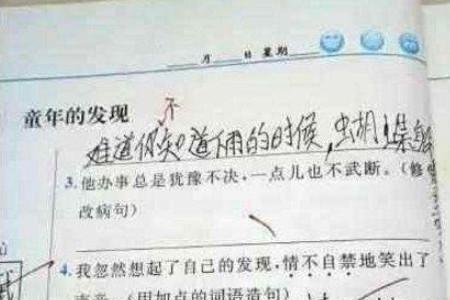 月 日 星期
童年的发现
不
难道你知道下雨的时候,
3.他办事总是犹豫不决,一点儿也不武断。(修
改病句)
4.我忽然想起了自己的发现,情不自禁地笑出了
声音。(用加点的词语造句)